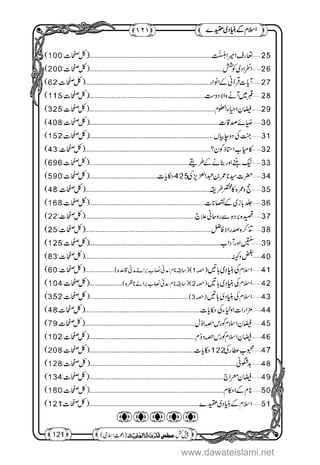 اسلام کے بنیادی عقیدے (۱۲۱)
25.....تعارفِ امیرِ اہلسنّت (کل صفحات:100)
26.....انفرادی کوشش (کل صفحات:200)
27.....آیاتِ قرآنی کے انوار (کل صفحات:62)
28.....قبر میں آنے والا دوست (کل صفحات:115)
29.....فیضانِ احیاء العلوم (کل صفحات:325)
30.....ضیائے صدقات (کل صفحات:408)
31.....جنت کی دو چابیاں (کل صفحات:152)
32.....کامیاب استاذ کون؟ (کل صفحات:43)
33.....نیکیاں (کل صفحات:696)
34.....حضرت سیدنا عمر بن عبدالعزیز کی 425 حکایات (کل صفحات:590)
35.....حج و عمرہ کا مختصر طریقہ (کل صفحات:48)
36.....جلد بازی کے نقصانات (کل صفحات:168)
37.....قصیدہ بردہ سے روحانی علاج (کل صفحات:22)
38.....تذکرہ صدر الافاضل (کل صفحات:25)
39.....سنتیں اور آداب (کل صفحات:125)
40.....بغض و کینہ (کل صفحات:83)
41.....اسلام کی بنیادی باتیں (حصہ 1) (سابقہ نام: مدنی نصاب برائے مدنی قاعدہ) (کل صفحات:60)
42.....اسلام کی بنیادی باتیں (حصہ 2) (سابقہ نام: مدنی نصاب برائے ناظرہ) (کل صفحات:104)
43.....اسلام کی بنیادی باتیں (حصہ 3) (کل صفحات:352)
44.....مزاراتِ اولیاء کی حکایات (کل صفحات:48)
45.....فیضانِ اسلام کورس حصہ اوّل (کل صفحات:79)
46.....فیضانِ اسلام کورس حصہ دوم (کل صفحات:102)
47.....محبوبِ عطار کی 122 حکایات (کل صفحات:208)
48.....بدشگونی (کل صفحات:128)
49.....فیضانِ معراج (کل صفحات:134)
50.....نام کے احکام (کل صفحات:180)
51.....اسلام کے بنیادی عقیدے (کل صفحات:121)
پیش کش: مجلس المدینۃ العلمیۃ (دعوتِ اسلامی) 121
www.dawateislami.net